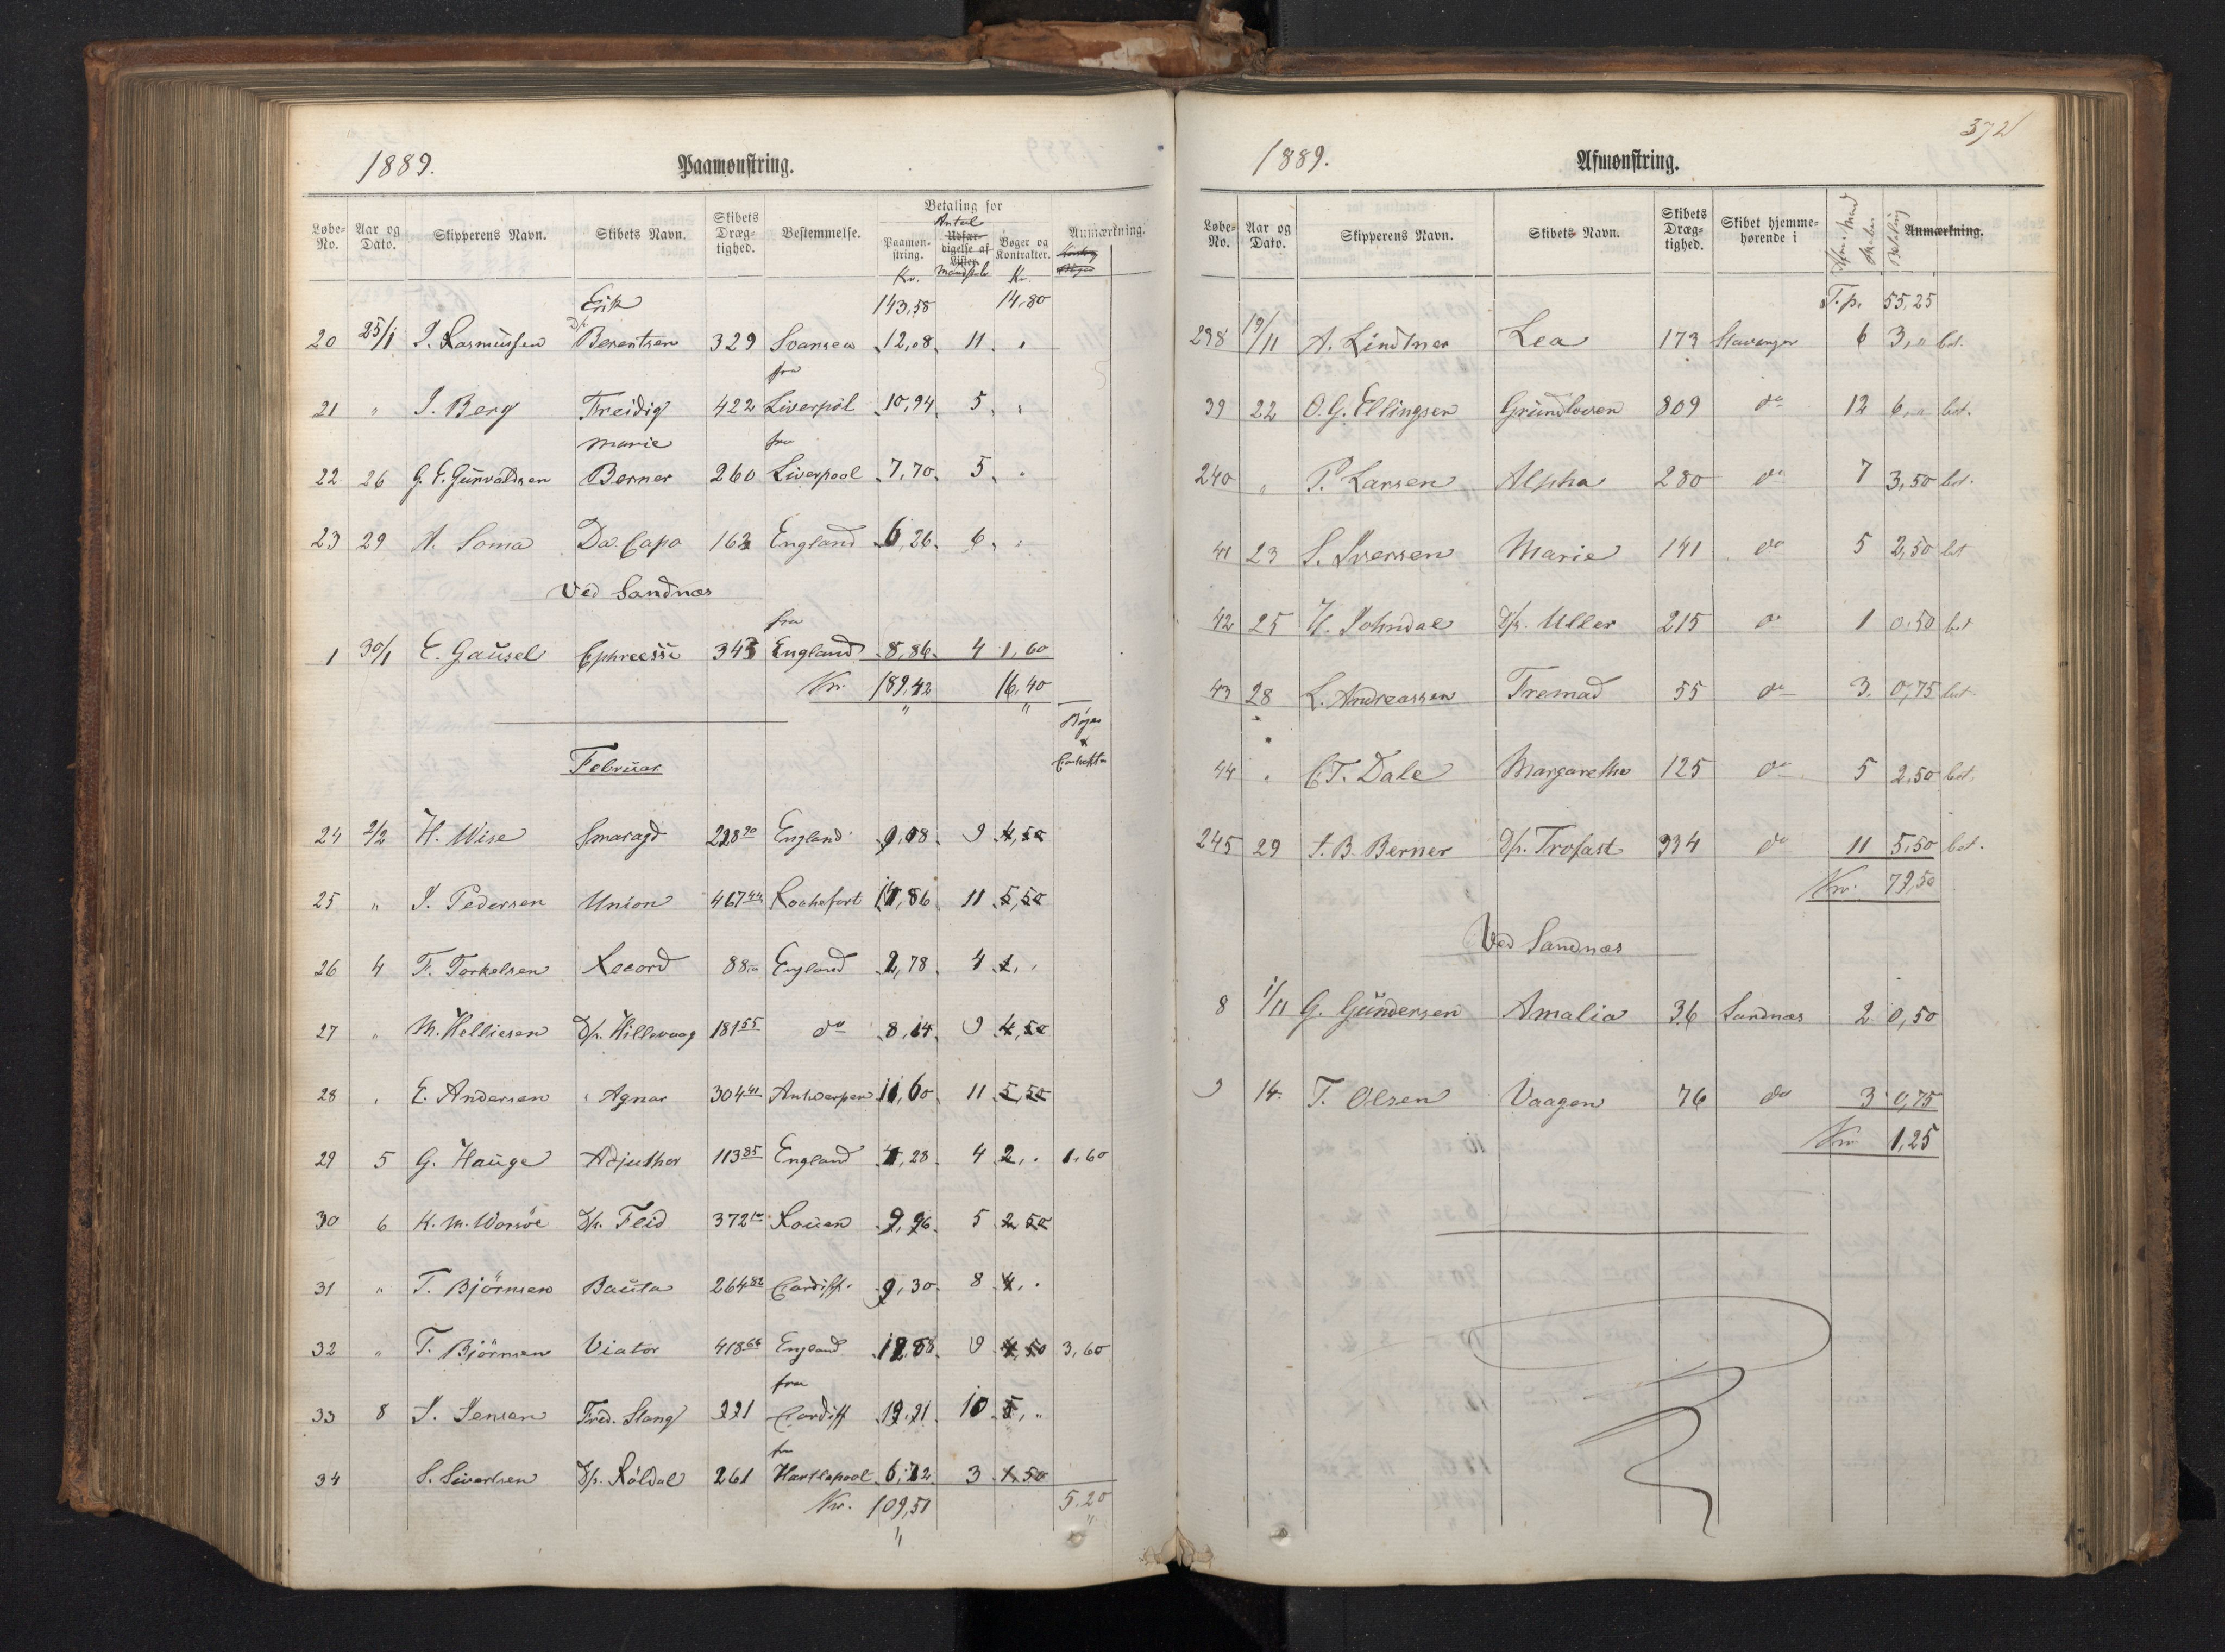 1889. Paamønstring.
Løbe-No. Aar og Dato. Skipperens Navn. Skibets Navn. Skibets Dræg-tighed. Bestemmelse. Betaling for Paamøn-string. Kr. Antal Udfær-digelse af Lister. Mandskab Bøger og Kontrakter. Kr. Anmærkning.
143,58 14,80
20 25/1 P. Rasmussen Erik Berentsen 329 Svansea 12,08 11 "
21 " J. Berg Freidig 422 fra Liverpol 10,94 5 "
22 26 G. E. Gunvaldsen Marie Berner 260 fra Liverpool 7,70 5 "
23 29 A. Soma Da Capo 162 England 6,26 6 "
Ved Sandnæs
1 30/1 E. Gausel 343 fra England 8,86 4 1,60
Kr. 189,42 16,40
Bøger & Contrakter
Februar
24 2/2 H. Wise Smaragd 228 20 England 9,08 9 4,50
25 " J. Pedersen Union 467 44 Rochefort 14,86 11 5,50
26 4 F. Torkelsen Record 88 England 2,78 4 2, "
27 " M. Helliesen D/s. Hillevaag 181 55 do 8,14 9 4,50
28 " E. Andersen " Agnar 304 41 Antwerpen 11,60 11 5,50
29 5 G. Hauge Adjuthor 113 85 England 4,28 4 2, " 1,60
30 6 K. M. Worsöe D/s. Feid 372 Rouen 9,96 5 2,50
31 " T. Björnsen Bauta 264 82 Cardiff 9,30 8 4, "
32 " T. Björnsen Viator 418 64 England 12,88 9 4,50 3,60
33 8 J. Jensen Fred. Stang 221 fra Cardiff 10 5, "
34 S. Sivertsen D/s. Röldal 261 fra Hartlepool 6,72 3 1,50
Kr. 109,51 5,20
372
1889. Afmønstring.
Løbe-No. Aar og Dato. Skipperens Navn. Skibets Navn. Skibets Dræg-tighed. Skibet hjemme-hørende i Betaling Anmærkning.
T.p. 55,25
238 19/11 A. Lindtner Lea 173 Stavanger 6 3, " bet.
39 22 O. G. Ellingsen Grundloven 809 do 12 6, " bet.
240 " P. Larsen Alpha 280 do 7 3,50 bet.
41 23 S. Iversen Marie 141 do 5 2,50 bet
42 25 D/s. Uller 215 do 1 0,50 bet
43 28 L. Andreassen Fremad 55 do 3. 0,75 bet.
44 " C. T. Dale Margarethe 125 do 5 2,50 bet.
245 29 J. B. Berner D/s. Trofast 334 do 11 5,50 bet.
Kr. 79,50
Ved Sandnæs
8 1/11 G. Gundersen Amalia 36 Sandnæs 2 0,50
9 14. T. Olsen Vaagen 76 do 3 0,75
Kr 1,25